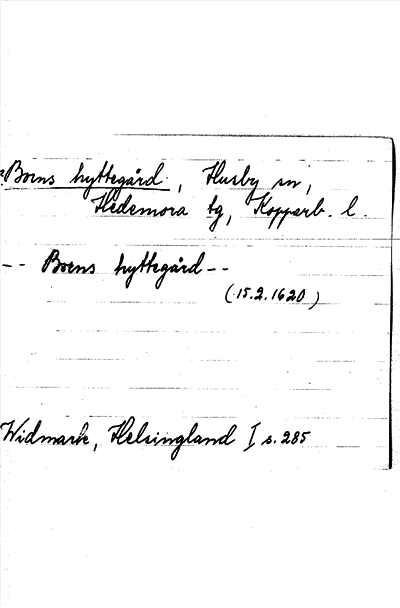 Boens hyttegård, Husby sn,
Hedemora tg, Kopparb. l.
-- Boens hyttegård --
(15.2.1620)
Widmark, Helsingland I s. 285